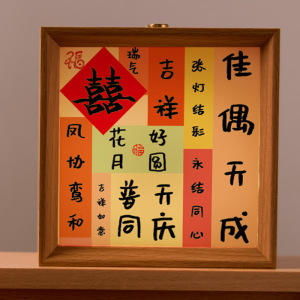 囍
瑞气
吉祥
张灯结彩
佳偶天成
凤协鸾和
花好
月圆
吉祥如意
普天
同庆
永结同心